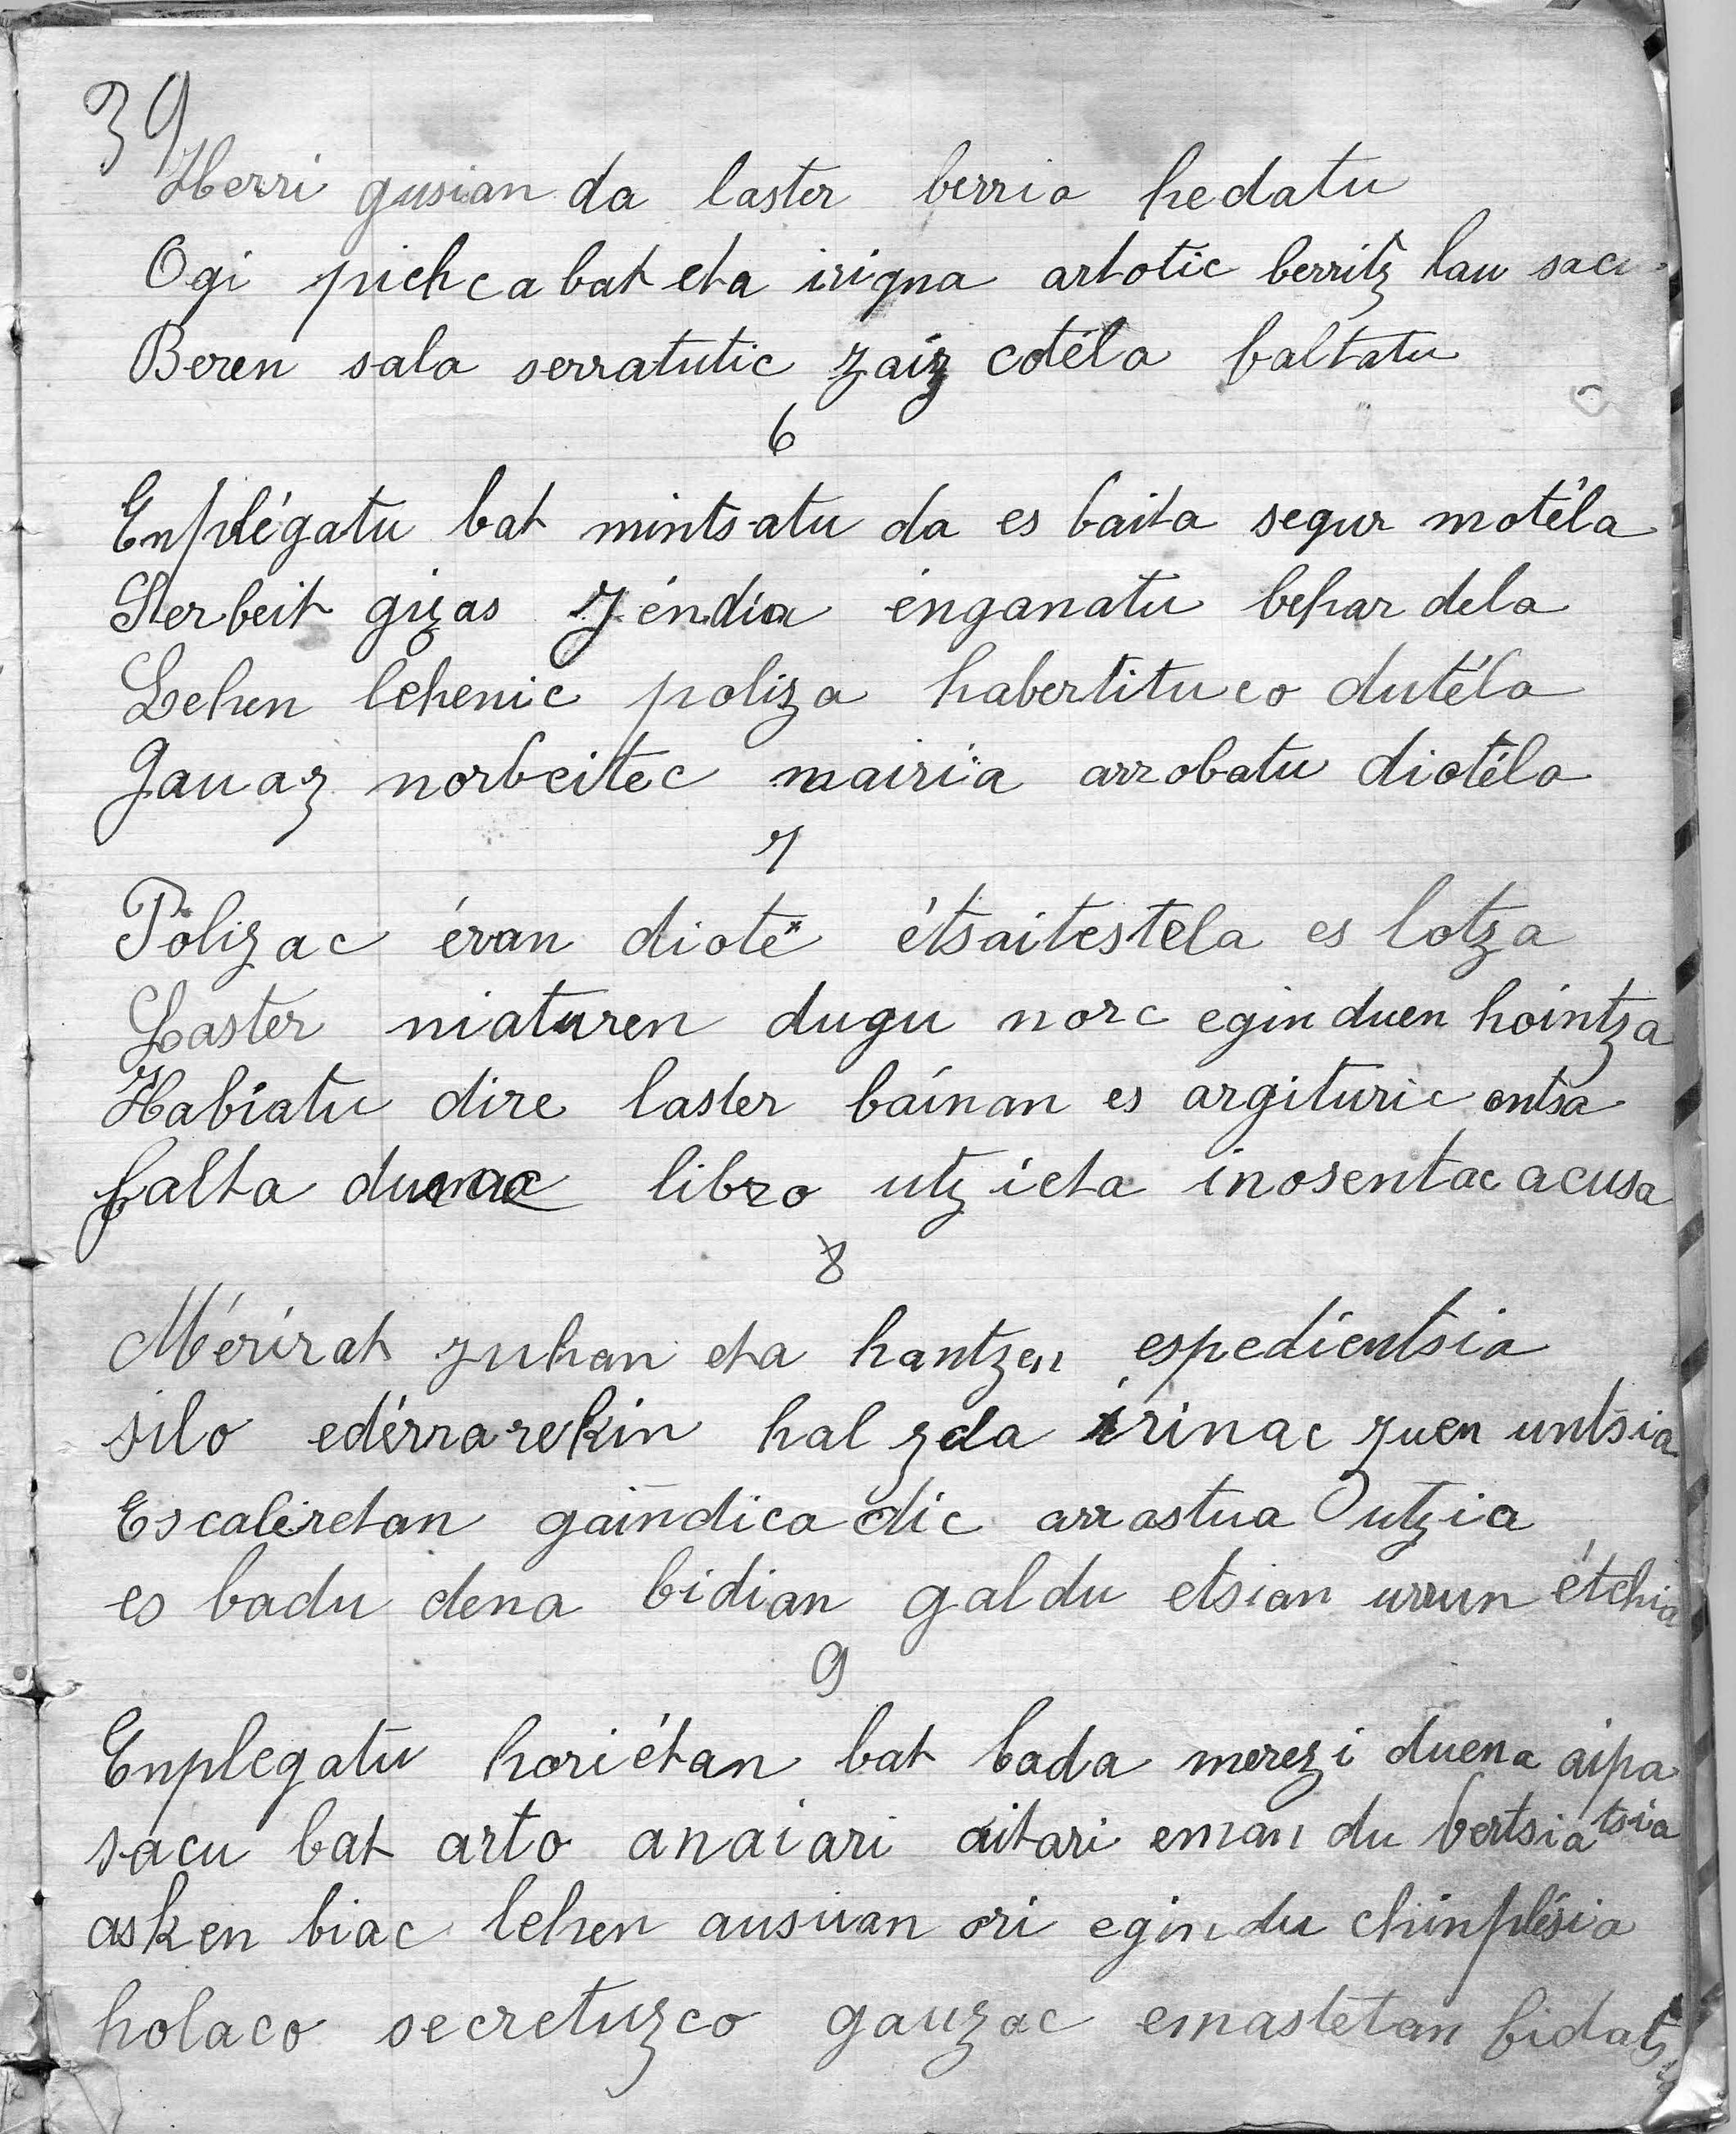 39
Herri gusian da laster berria hedatu
Ogi pichca bat eta irigna artotic berritz lau sacu
Beren sala serratutic zaiz cotéla faltatu
6
Enplégatu bat mintsatu da es baita segur motéla
Serbeit gizas Jéndia énganatu behar dela
Lehen lehenic poliza habertituco dutéla
Gauaz norbeitec mairia arrobatu diotéla
7
Polizac érran diote étsaitestela es lotza
Laster miaturen dugu norc egin duen hointza
Habiatu dire laster báinan es argituric ontsa
falta duenac libro utzieta inosentac acusa
8
Mérírat juhan eta hantzen espedientsia
silo edérrarekin hal zela irinac zuen untsia
Escaléretan gaindica dic arrastua utzia
es badu dena bidian galdu etsian urrun étchia
9
Enplegatu horiétan bat bada merezi duena aipa
tsia
sacu bat arto anaiari aitari eman du bertsia
asken biac lehen ausuan ori egin du chinplésia
holaco secretuzco gauzac emastetan fidatzia